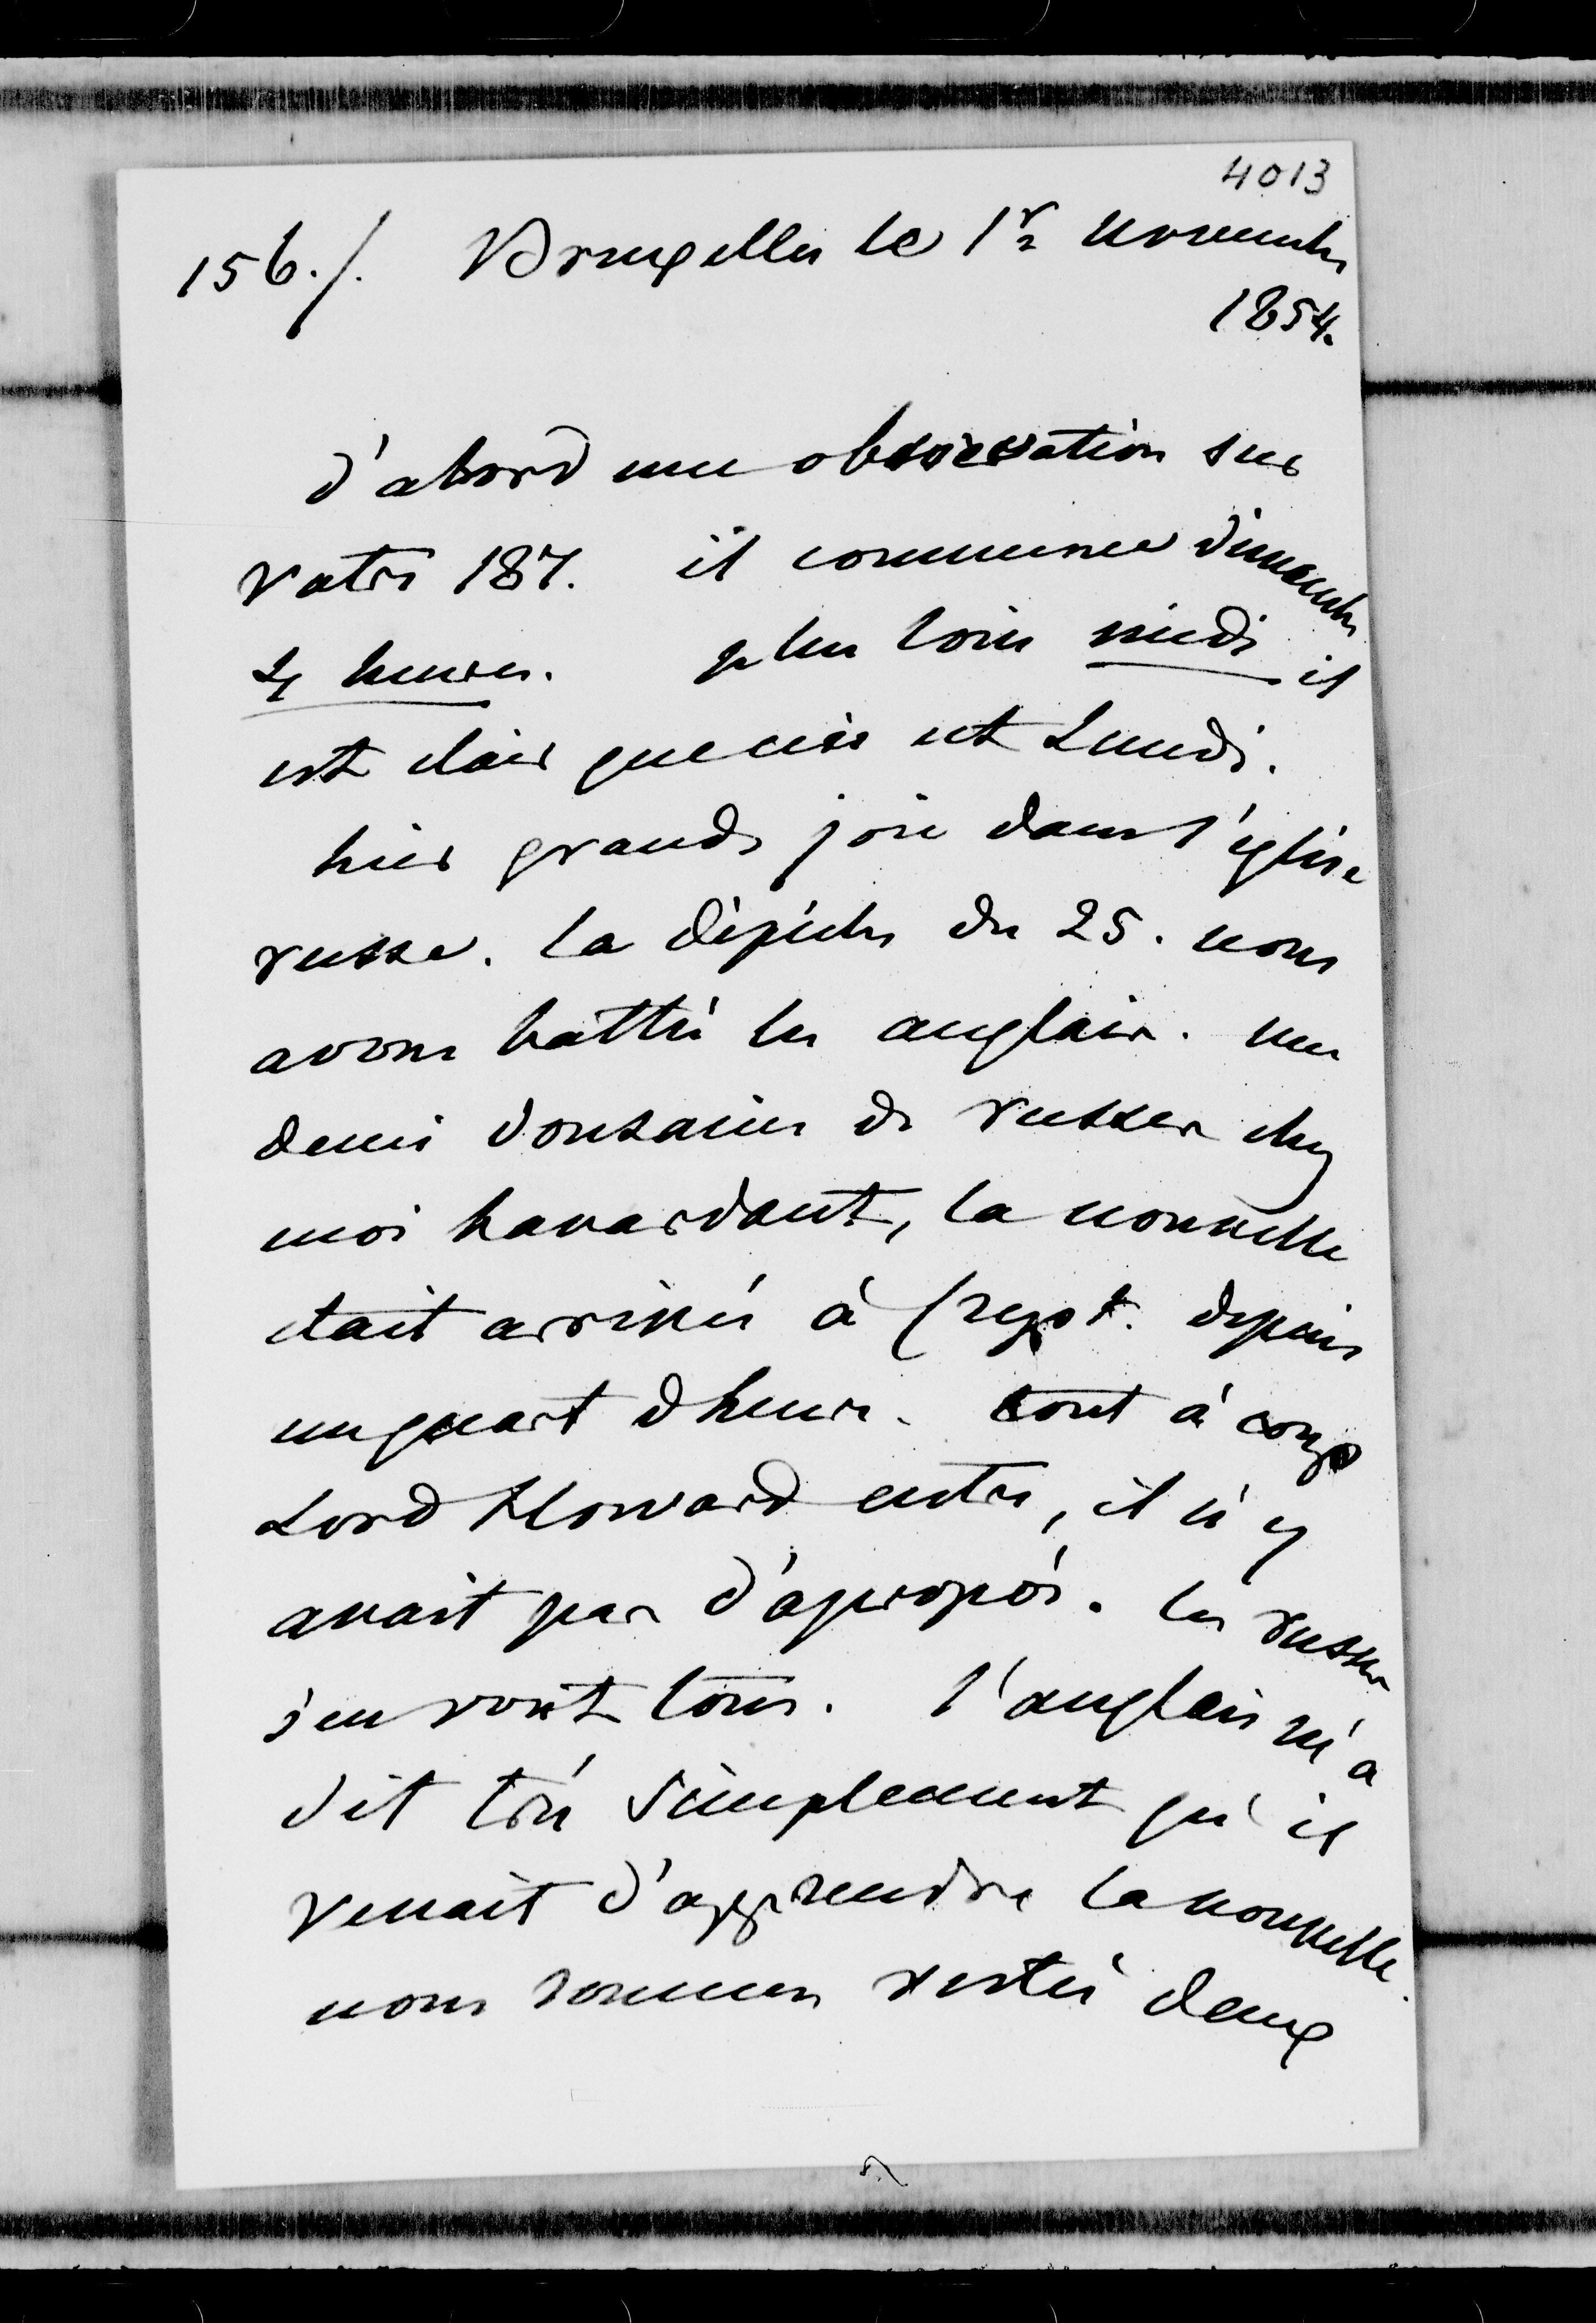 4013
156./. Bruxelles le 1r novembre
1854.
d'abord une observation sur
votre 187. il commence dimanche
4 heures. plus loin midi il
est clair que ceci est Lundi.
hier grande joie dans l'église
russe. la dépêche du 25. nous
avons battu les anglais. une
demi douzaine de russes chez
moi bavardant, la nouvelle
était arrivée à
depuis
un quart d'heure. tout à coup
Lord Howard entre, il n'y
avait pas d'apropos. les russes
s'en vont tous. l'anglais m'a
dit très simplement qu'il
venait d'apprendre la nouvelle.
nous sommes restés deux